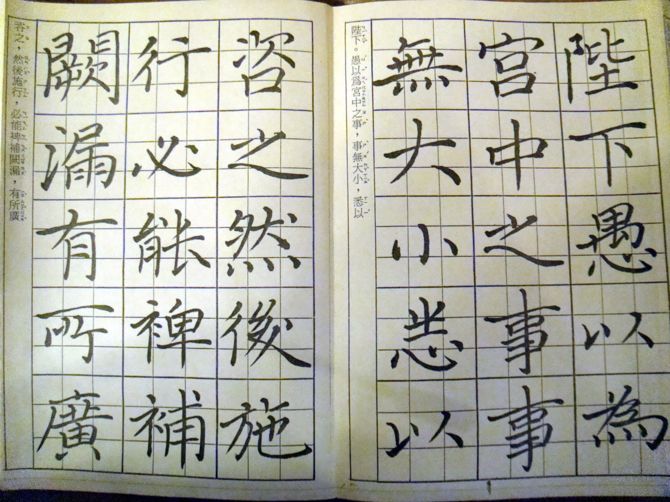 陛下愚以為
宮中之事事
無大小悉以
陛下。愚以爲宮中之事，事無大小，悉以
咨之然後施
行必能裨補
闕漏有所廣
咨之，然後施行，必能裨補闕漏，有所廣